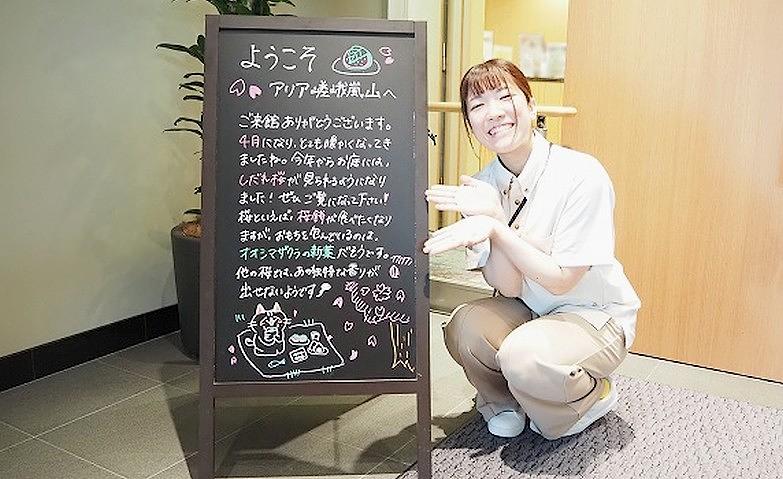 ようこそ
アリア嵯峨嵐山へ
ご来館ありがとうございます。
4月になり、とても暖かくなってき
ましたね。今年からお庭には、
しだれ桜が見られるようになり
ました！ぜひご覧になって下さい！
桜といえば、桜餅が食べたくなり
ますが、おもちを包んでいるのは、
オオシマザクラの新葉だそうです。
他の桜では、あの独特な香りが
出せないようです